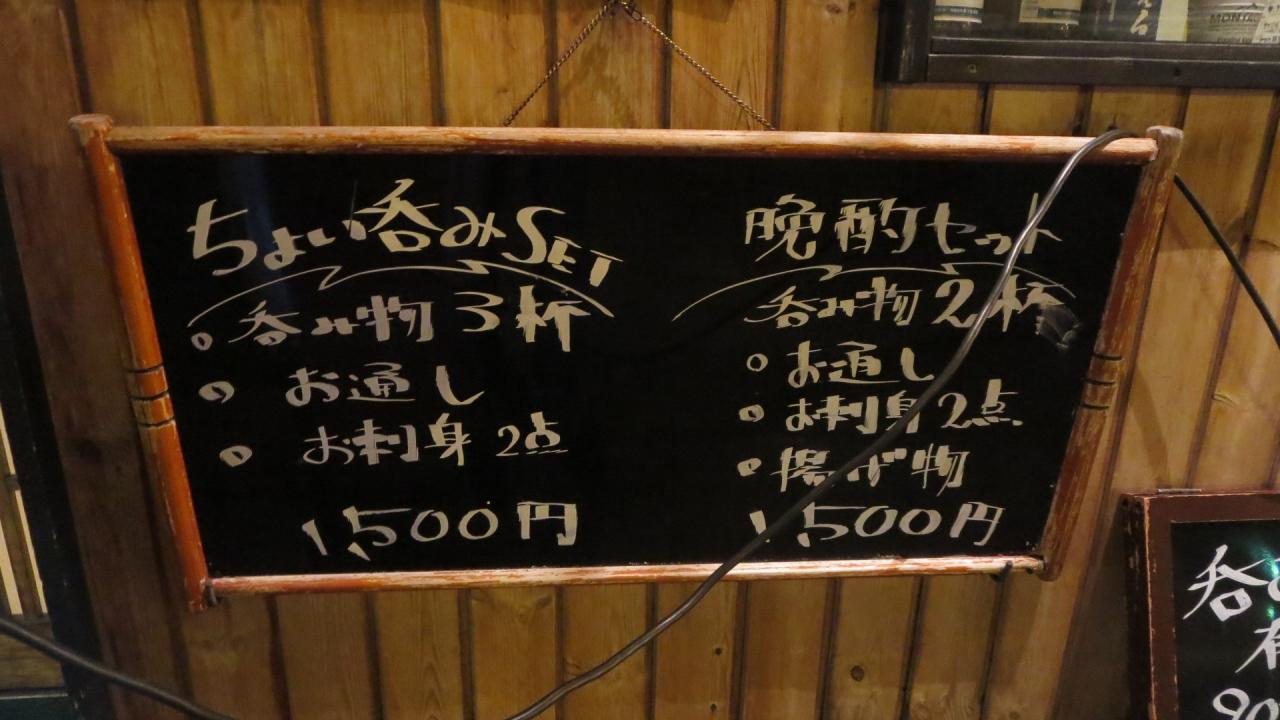 ちょい呑みSET
呑み物3杯
お通し
お刺身2点
1,500円
晩酌セット
呑み物2杯
お通し
お刺身2点
揚げ物
1,500円
呑
90